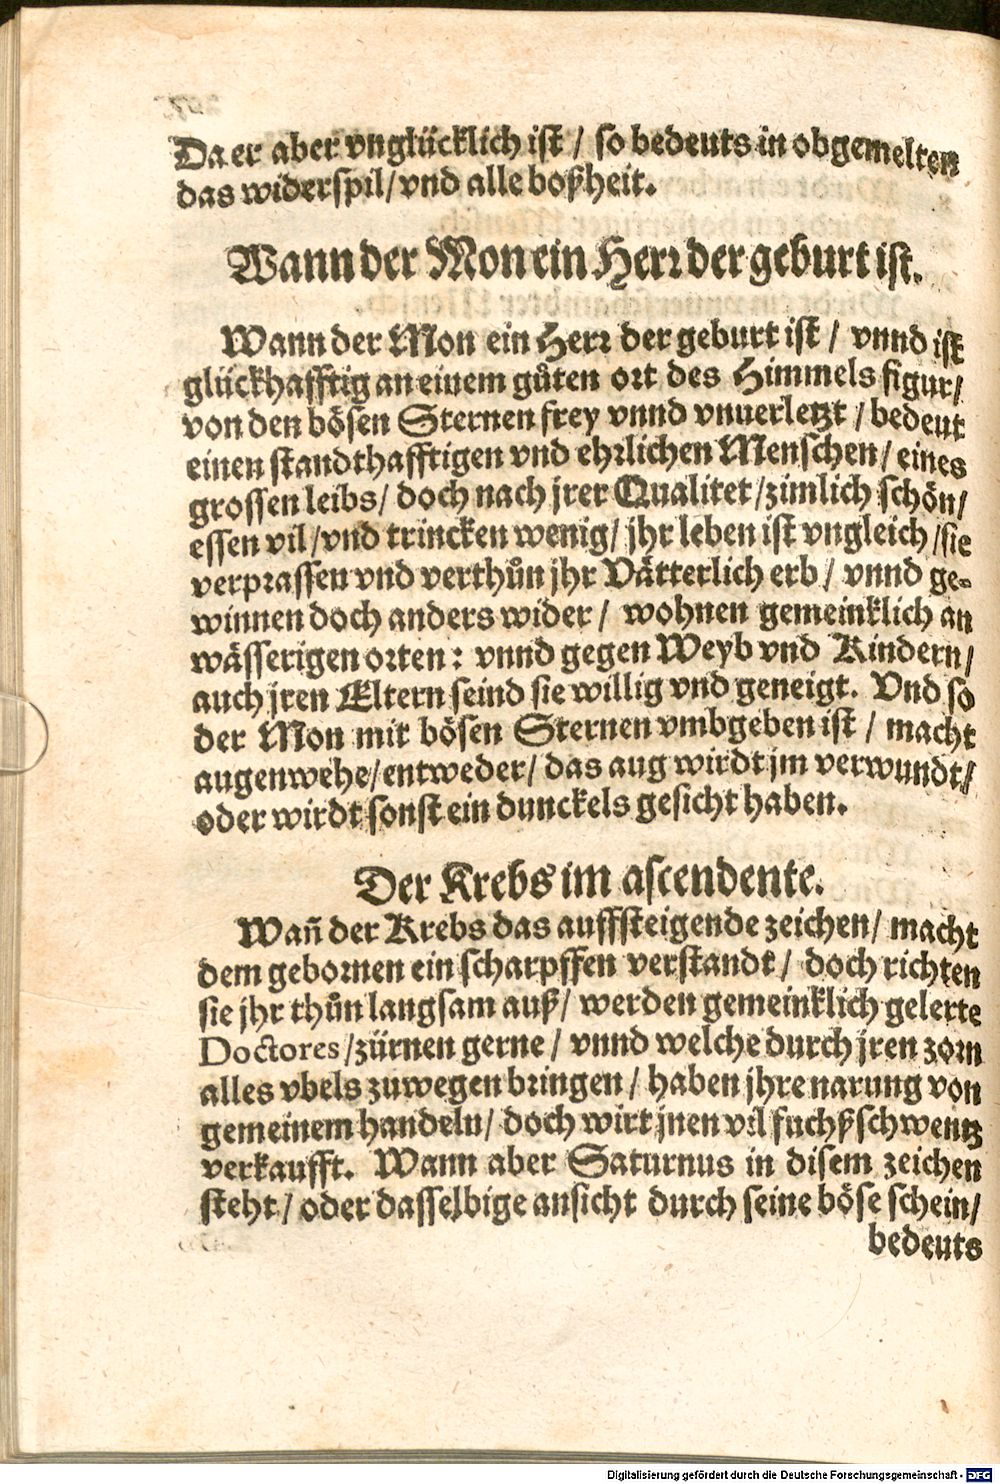 Da er aber vnglücklich ist / so bedeuts in obgemelten
das widerspil/vnd alle boßheit.
Wann der Mon ein Herr der geburt ist.
Wann der Mon ein Herr der geburt ist / vnnd ist
glückhafftig an einem gůten ort des Himmels figur/
von den bösen Sternen frey vnnd vnuerletzt / bedeut
einen standthafftigen vnd ehrlichen Menschen/ eines
grossen leibs/ doch nach jrer Qualitet /zimlich schön/
essen vil /vnd trincken wenig/ jhr leben ist vngleich /sie
verprassen vnd verthůn jhr Vätterlich erb / vnnd ge-
winnen doch anders wider / wohnen gemeinklich an
wässerigen orten: vnnd gegen Weyb vnd Kindern/
auch jren Eltern seind sie willig vnd geneigt. Vnd so
der Mon mit bösen Sternen vmbgeben ist / macht
augenwehe/entweder/ das aug wirdt jm verwundt/
oder wirdt sonst ein dunckels gesicht haben.
Der Krebs im ascendente.
Wañ der Krebs das auffsteigende zeichen/ macht
dem gebornen ein scharpffen verstandt / doch richten
sie jhr thůn langsam auß/ werden gemeinklich gelerte
Doctores /zürnen gerne / vnnd welche durch jren zorn
alles vbels zuwegen bringen / haben jhre narung von
gemeinem handeln/ doch wirt jnen vil fuchßschwentz
verkaufft. Wann aber Saturnus in disem zeichen
steht / oder dasselbige ansicht durch seine böse schein/
bedeuts
Digitalisierung gefördert durch die Deutsche Forschungsgemeinschaft - DFG